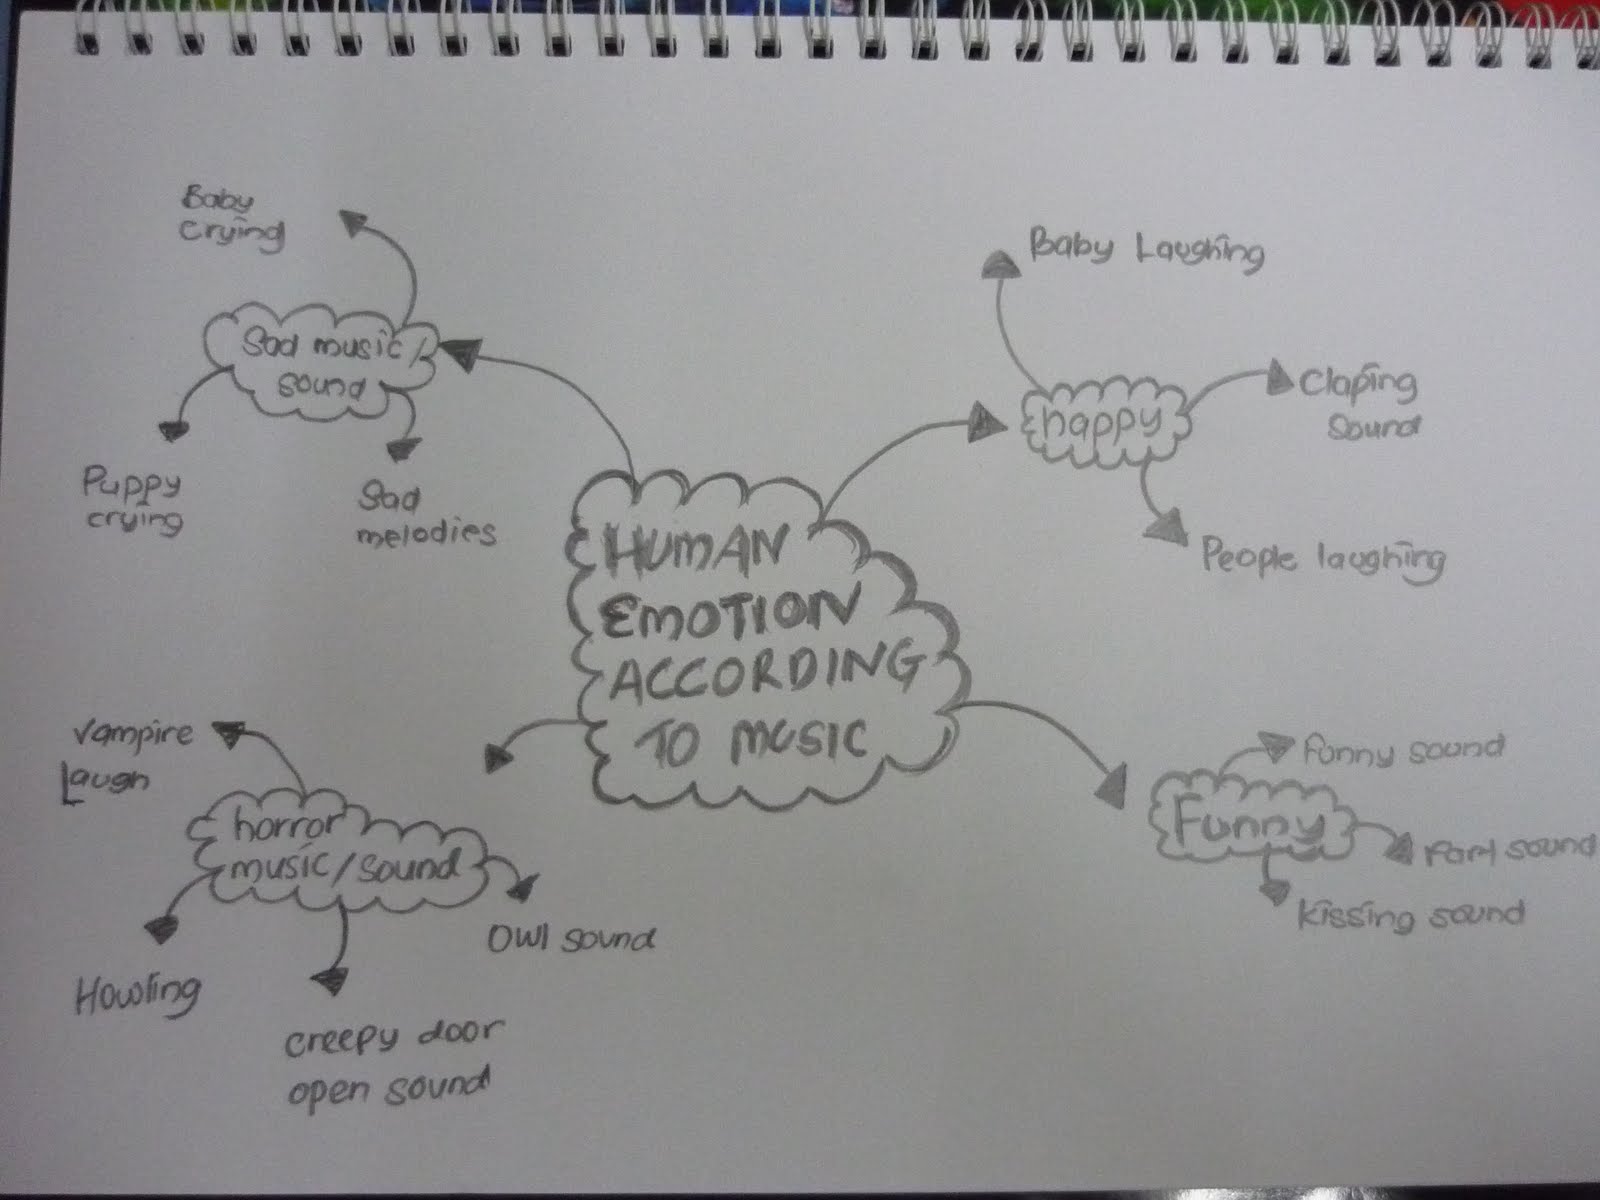 HUMAN
EMOTION
ACCORDING
TO MUSIC
Sad music/
sound
Baby
crying
Puppy
crying
Sad
melodies
happy
Baby Laughing
Claping
Sound
People laughing
horror
music/sound
vampire
Laugh
Howling
creepy door
open sound
Owl sound
Funny
Funny sound
Fart sound
kissing sound